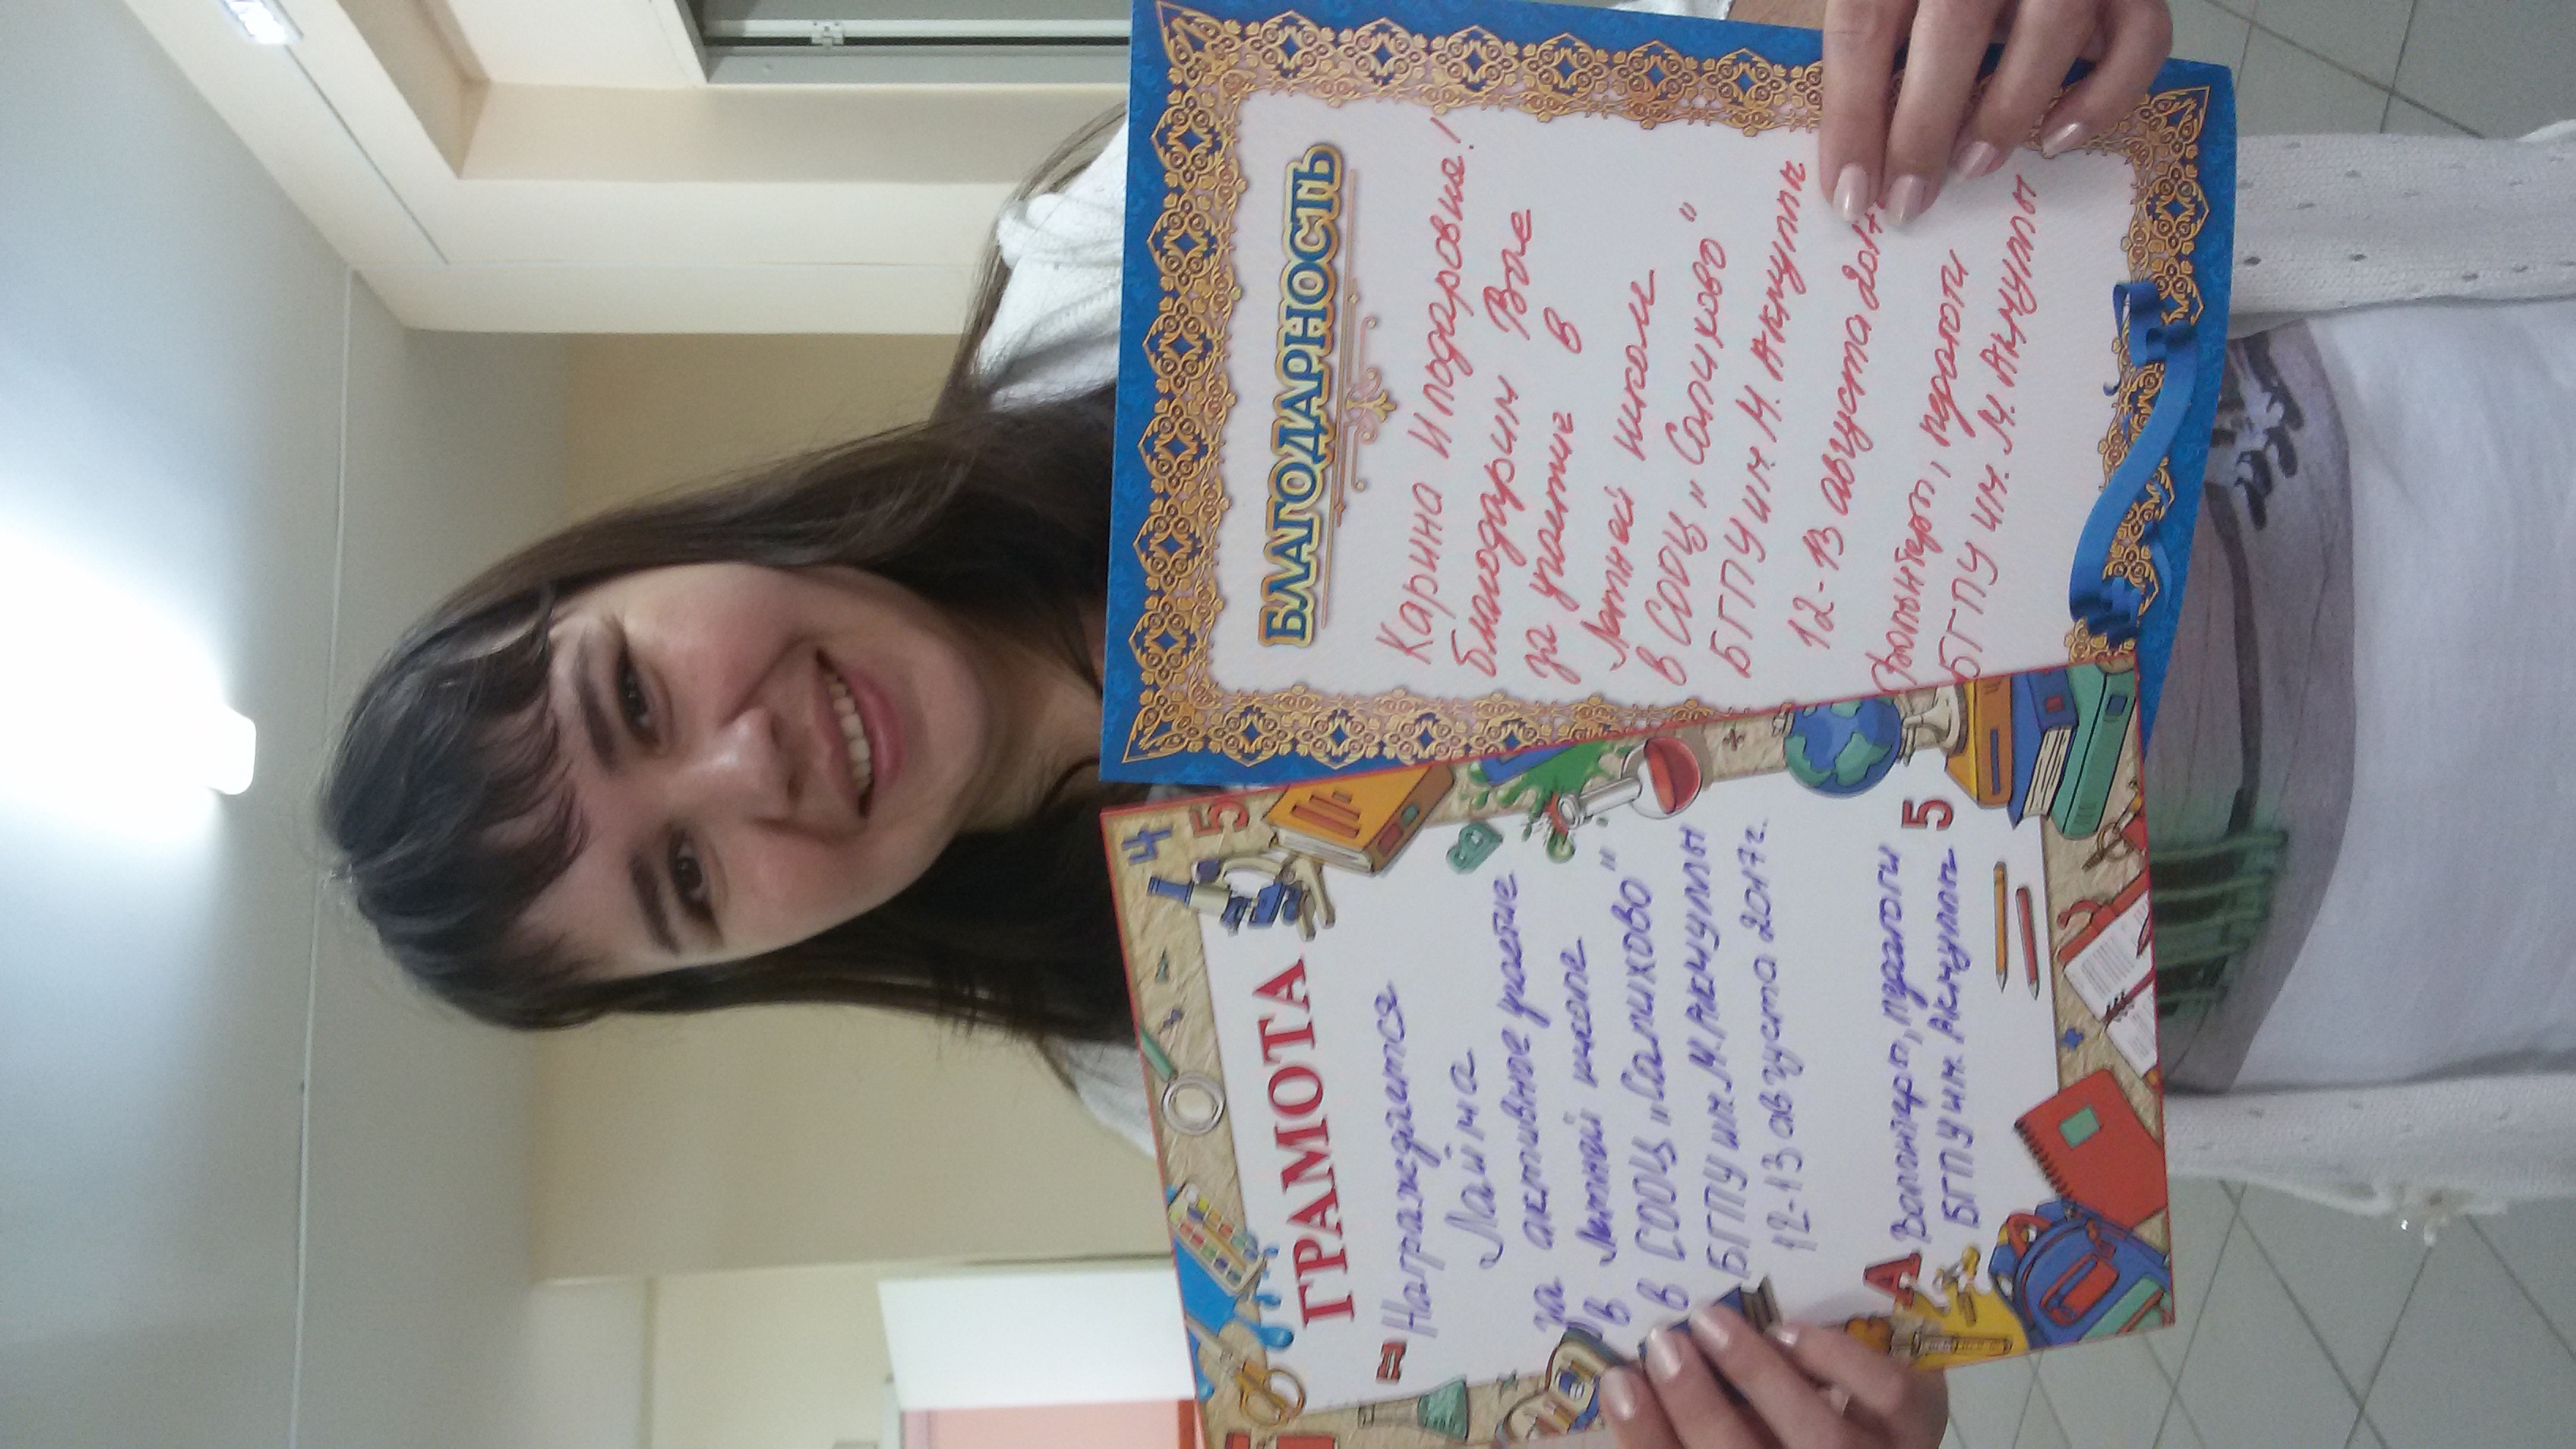 4 5
ГРАМОТА
Награждается
Лайма
за активное участие
в Летней школе
в СООЦ „Салихово"
БГПУ им. М. Акмуллы
12-13 августа 2017г.
А
5
Волонтеры, педагоги
БГПУ им. Акмуллы
БЛАГОДАРНОСТЬ
Карина Ильдаровна!
благодарим Вас
за участие в
Летней школе
в СООЦ „Салихово"
БГПУ им М. Акмуллы
12-13 августа 2017
Волонтеры, педагоги
БГПУ им. М. Акмуллы